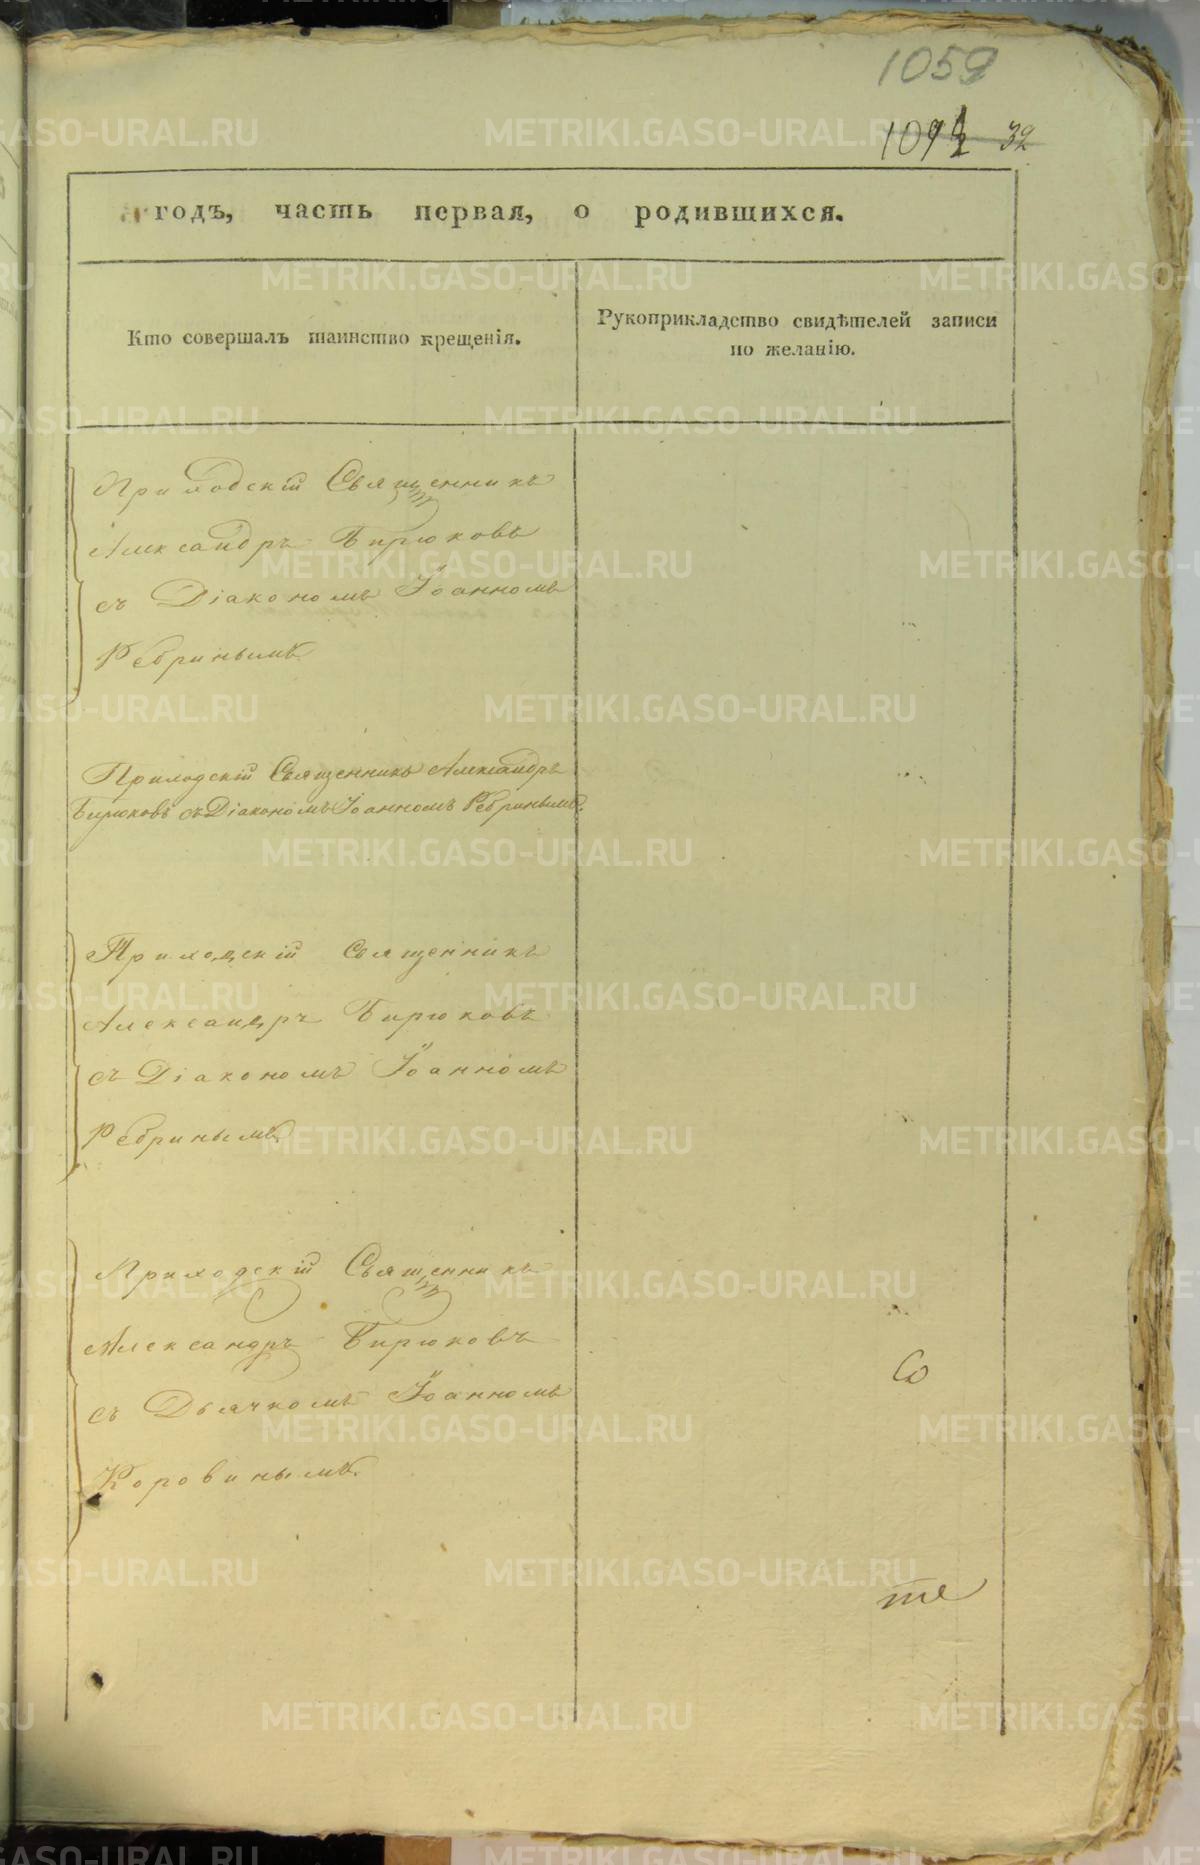 1059
1094 32
годъ, часть первая, о родившихся.
Кто совершалъ таинство крещенія.
Рукоприкладство свидѣтелей записи
по желанію.
Приходскій Священникъ
Александръ Бирюковъ
съ Діакономъ Іоанномъ
Ребринымъ.
Приходскій Священникъ Александръ
Бирюковъ съ Діакономъ Іоанномъ Ребринымъ.
Приходскій Священникъ
Александръ Бирюковъ
съ Діакономъ Іоанномъ
Ребринымъ.
Приходскій Священникъ
Александръ Бирюковъ
съ Дьячкомъ Іоанномъ
Коровинымъ.
Со
те
METRIKI.GASO-URAL.RU